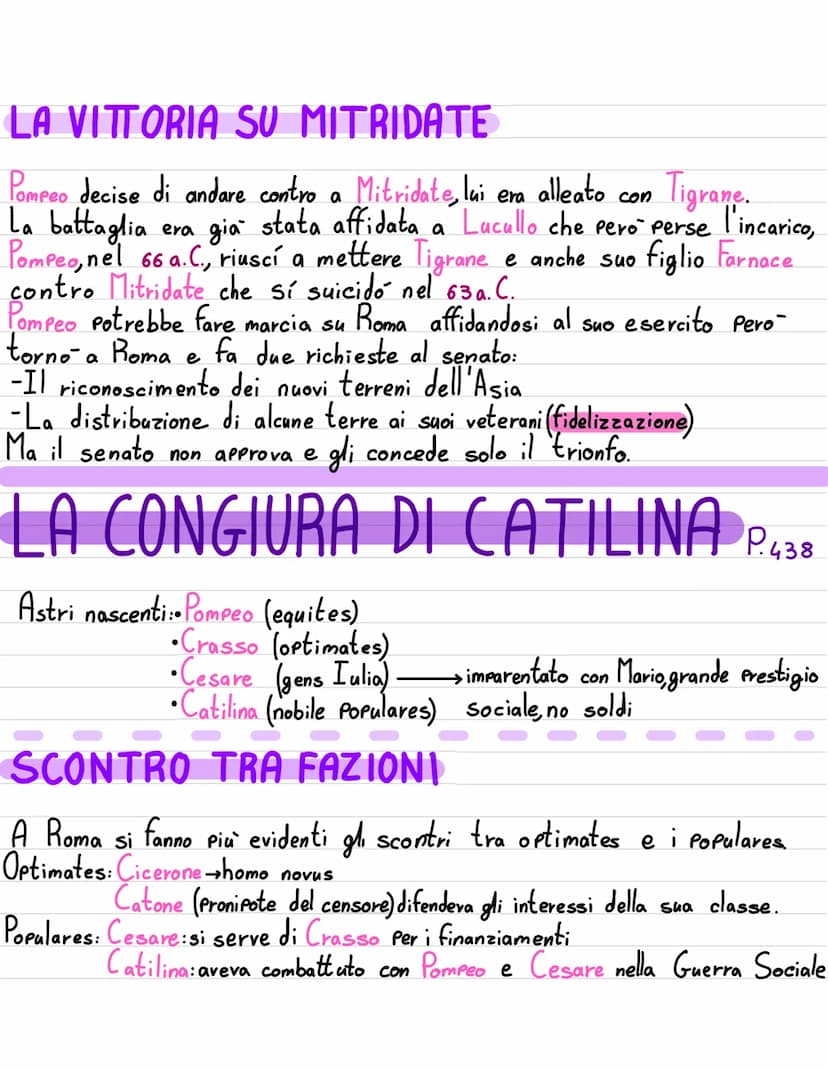 LA VITTORIA SU MITRIDATE
Pompeo decise di andare contro a Mitridate, lui era alleato con Tigrane.
La battaglia era già stata affidata a Lucullo che però perse l'incarico,
Pompeo, nel 66 a.C., riuscí a mettere Tigrane e anche suo figlio Farnace
contro Mitridate che sí suicidò nel 63 a.C.
Pompeo potrebbe fare marcia su Roma affidandosi al suo esercito però
tornò a Roma e fa due richieste al senato:
-Il riconoscimento dei nuovi terreni dell'Asia
-La distribuzione di alcune terre ai suoi veterani (fidelizzazione)
Ma il senato non approva e gli concede solo il trionfo.
LA CONGIURA DI CATILINA P.438
Astri nascenti:•Pompeo (equites)
•Crasso (optimates)
•Cesare (gens Iulia) → imparentato con Mario, grande prestigio
•Catilina (nobile populares) sociale, no soldi
SCONTRO TRA FAZIONI
A Roma si fanno più evidenti gli scontri tra optimates e i populares
Optimates: Cicerone → homo novus
Catone (pronipote del censore) difendeva gli interessi della sua classe.
Populares: Cesare: si serve di Crasso per i finanziamenti
Catilina: aveva combattuto con Pompeo e Cesare nella Guerra Sociale